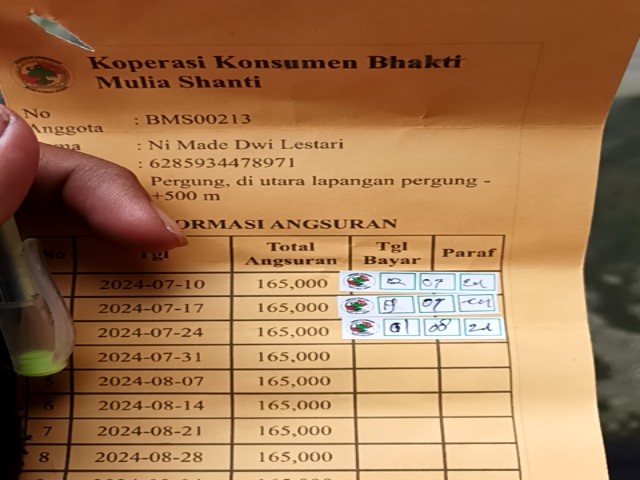 Koperasi Konsumen Bhakti
Mulia Shanti
No
Anggota : BMS00213
: Ni Made Dwi Lestari
: 6285934478971
Pergung, di utara lapangan pergung -
+500 m
ORMASI ANGSURAN
No Tgl Total Angsuran Tgl Bayar Paraf
2024-07-10 165,000 07
2024-07-17 165,000 07
2024-07-24 165,000 01 08 24
2024-07-31 165,000
5 2024-08-07 165,000
6 2024-08-14 165,000
7 2024-08-21 165,000
8 2024-08-28 165,000